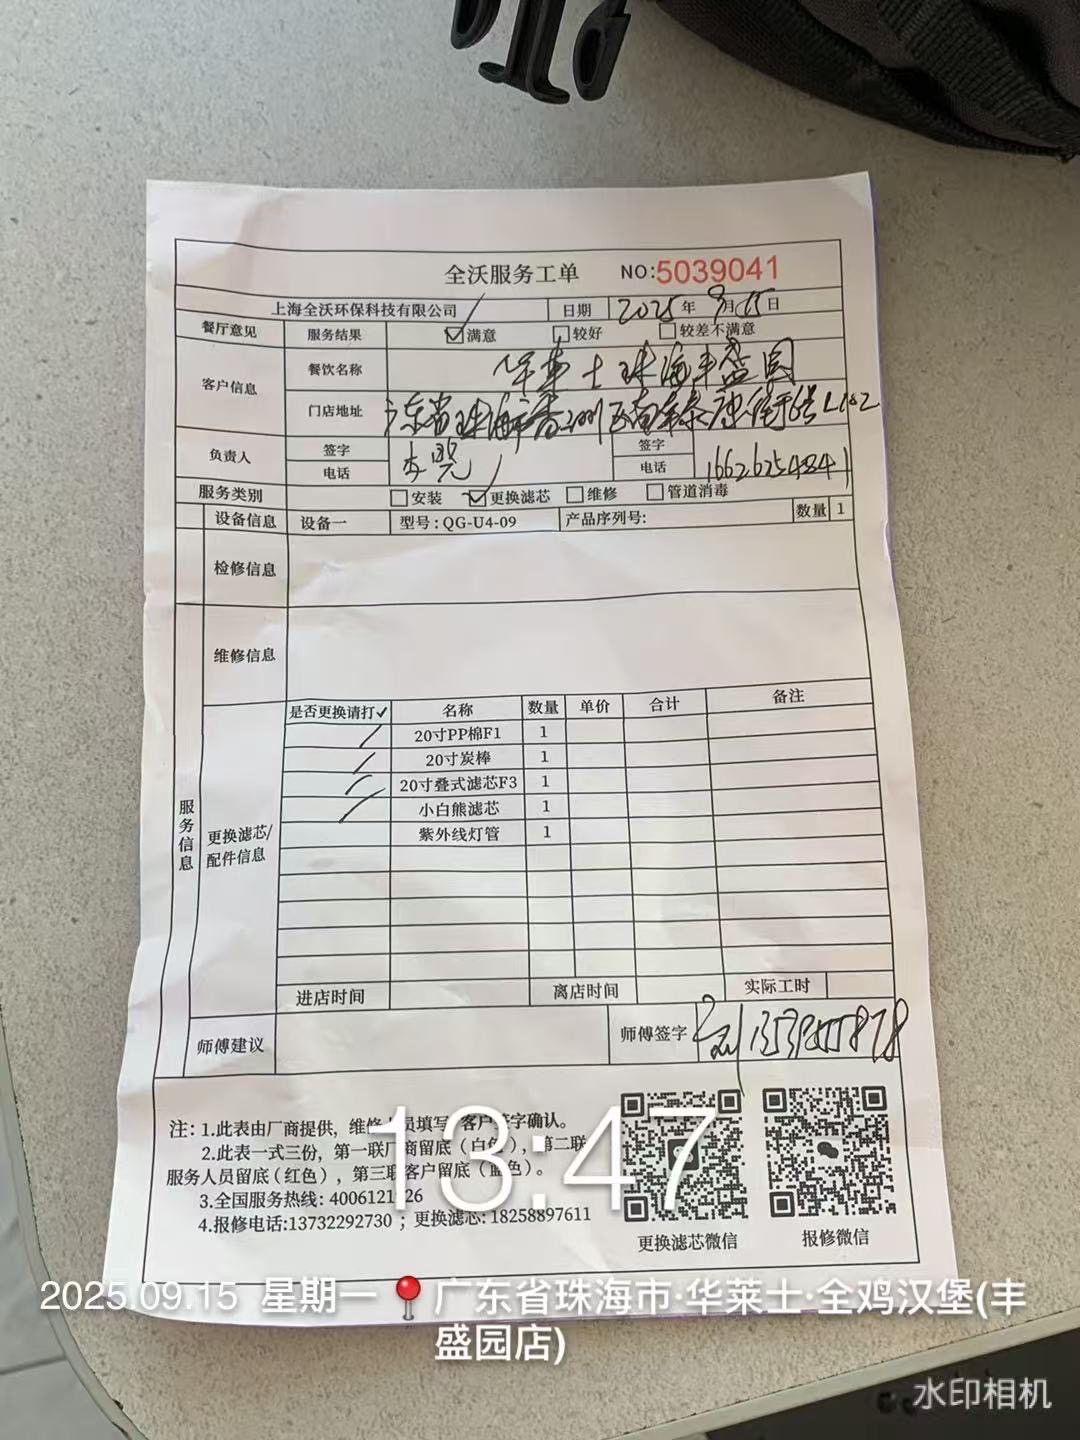 全沃服务工单 NO:5039041
上海全沃环保科技有限公司 日期 2025年9月15日
餐厅意见 服务结果 ☑满意 □较好 □较差不满意
客户信息 餐饮名称 华莱士珠海丰盛园
门店地址 广东省珠海市香洲区南丰康街6号L102
负责人 签字 签字
电话 电话 16626254841
服务类别 □安装 ☑更换滤芯 □维修 □管道消毒
设备信息 设备一 型号:QG-U4-09 产品序列号: 数量 1
检修信息
维修信息
服务信息
更换滤芯/
配件信息
是否更换请打✓ 名称 数量 单价 合计 备注
20寸PP棉F1 1
20寸炭棒 1
20寸叠式滤芯F3 1
小白熊滤芯 1
紫外线灯管 1
进店时间 离店时间 实际工时
师傅建议 师傅签字 刘
注: 1.此表由厂商提供, 维修人员填写, 客户签字确认。
2.此表一式三份, 第一联厂商留底(白色), 第二联
服务人员留底(红色), 第三联客户留底(蓝色)。
3.全国服务热线: 4006121
4.报修电话:13732292730 ; 更换滤芯: 18258897611
更换滤芯微信 报修微信
13:47
2025.09.15 星期一 广东省珠海市·华莱士·全鸡汉堡(丰
盛园店)
水印相机